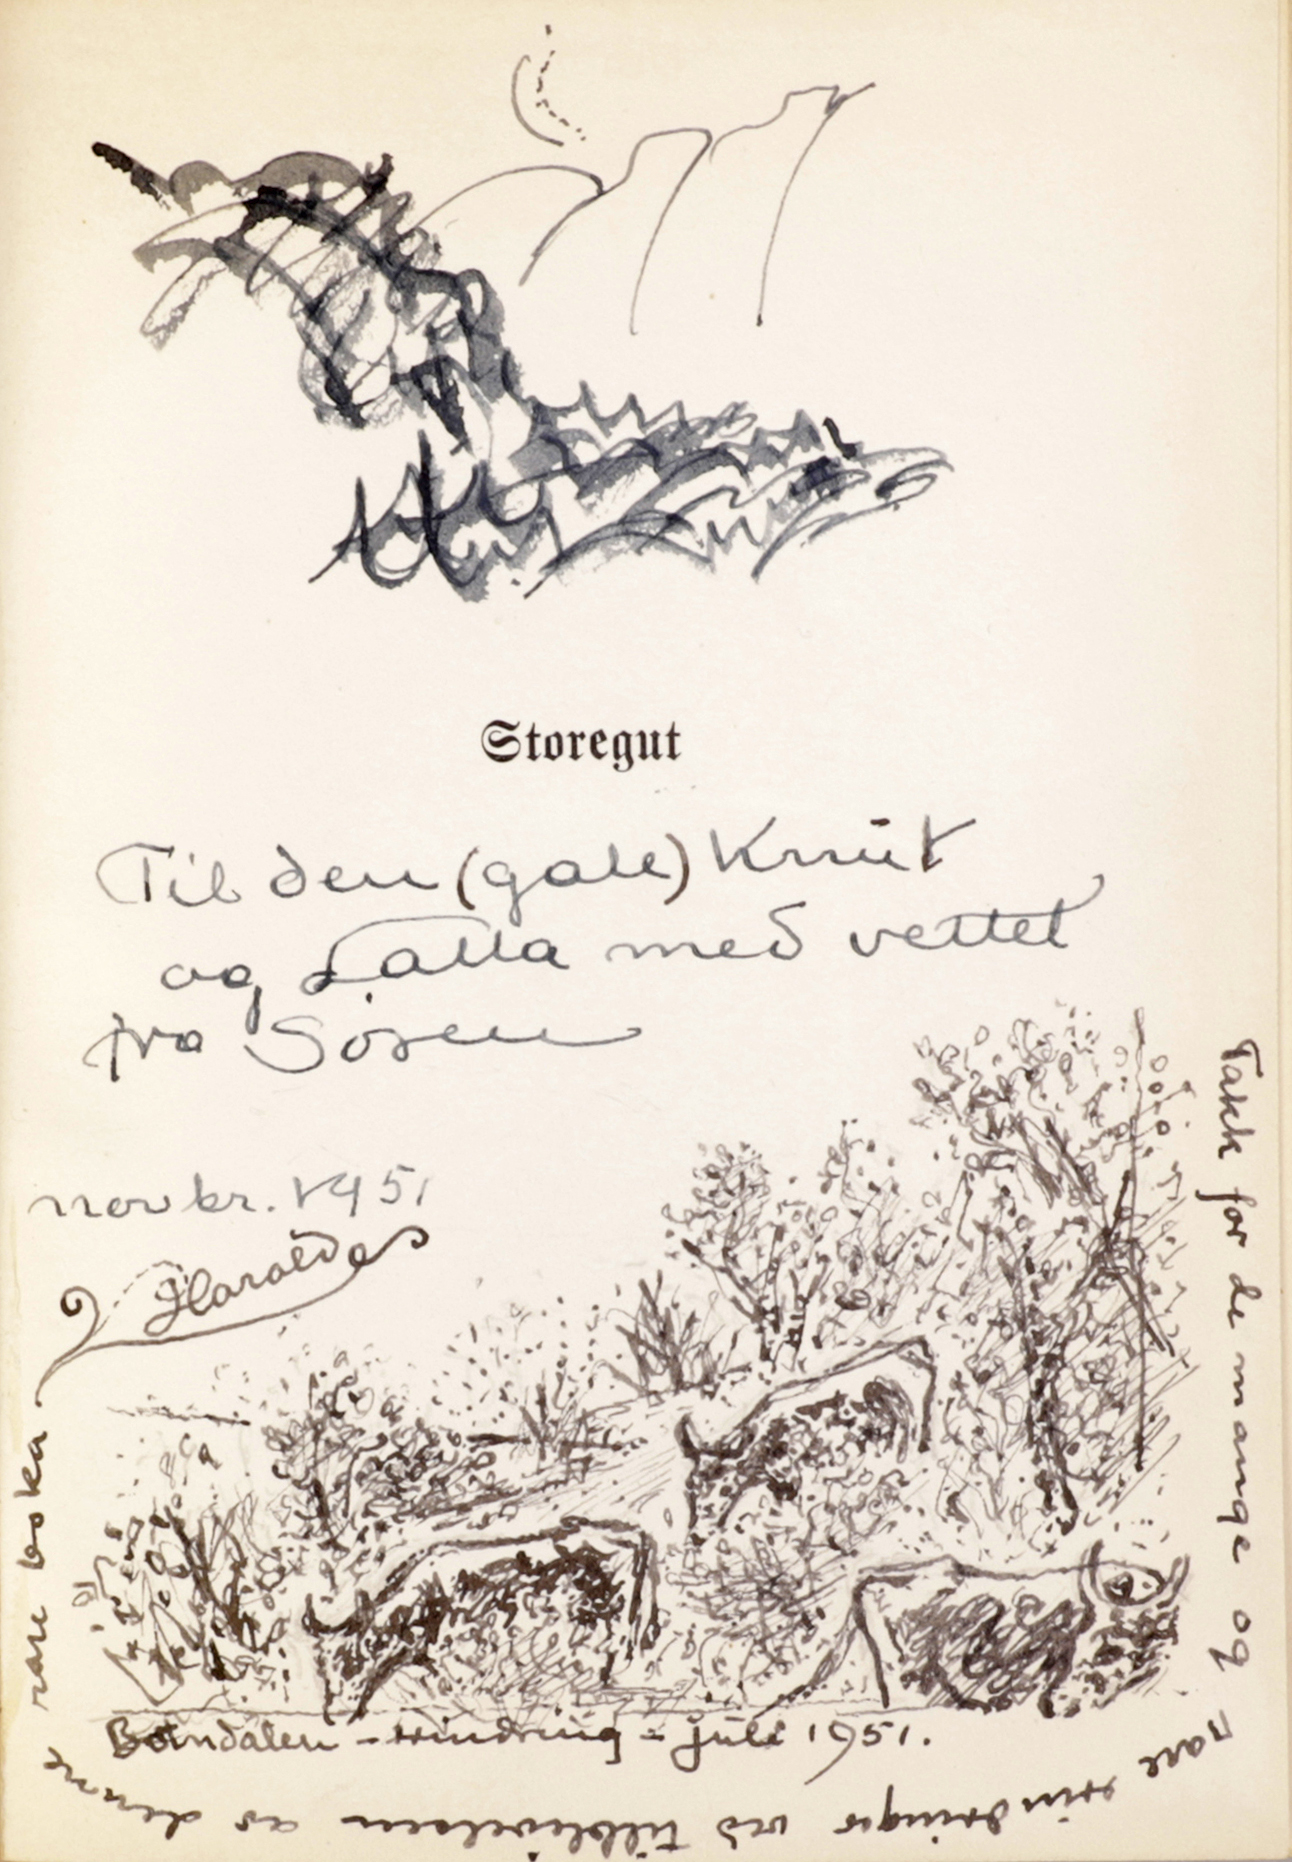 Storegut
Til den (gale) Knut
og Lalla med vettet
fra Søren
novbr. 1951
Haralds
Bondalen - erindring - Juli 1951.
Takk for de mange og
rare erindringer ved tilblivelsen av denne
rare boka